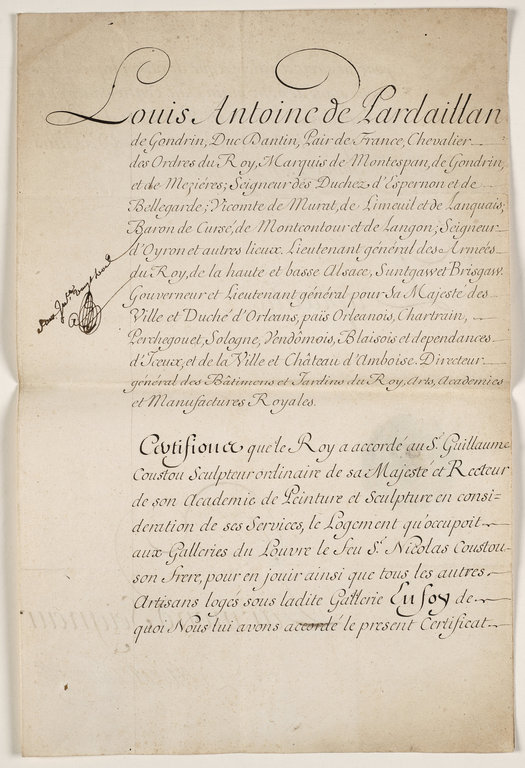 Louis Antoine de Pardaillan
de Gondrin, Duc Dantin, Pair de France, Chevalier
des Ordres du Roy, Marquis de Montespan, de Gondrin
et de Meziéres; Seigneur des Duchez d'Espernon et de
Bellegarde; Vicomte de Murat, de Limeuil et de Lanquais;
Baron de Cursé, de Montcontour et de Langon; Seigneur
d'Oyron et autres lieux. Lieutenant général des Armées
du Roy, de la haute et basse Alsace, Suntgaw et Brisgaw.
Gouverneur et Lieutenant général pour Sa Majesté des
Ville et Duché d'Orleans, païs Orleanois, Chartrain,
Perchegouet, Sologne, Vendômois, Blaisois et dependances
d'Iceux, et de la Ville et Château d'Amboise. Directeur
général des Bâtimens et Jardins du Roy, Arts, Academies
et Manufactures Royales.
Certifions que le Roy a accordé au Sr. Guillaume
Coustou Sculpteur ordinaire de sa Majesté et Recteur
de son Academie de Peinture et Sculpture en consi=
deration de ses Services, le Logement qu'occupoit
aux Galleries du Louvre le feu Sr. Nicolas Coustou
son Frere, pour en jouir ainsi que tous les autres
Artisans logés sous ladite Gallerie En foy de
quoi Nous lui avons accordé le present Certificat